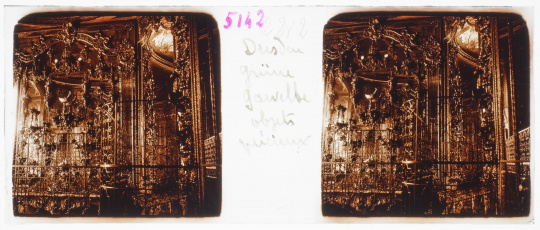 5142 212
Dresden
grüne
Gewelbe
objets
précieux